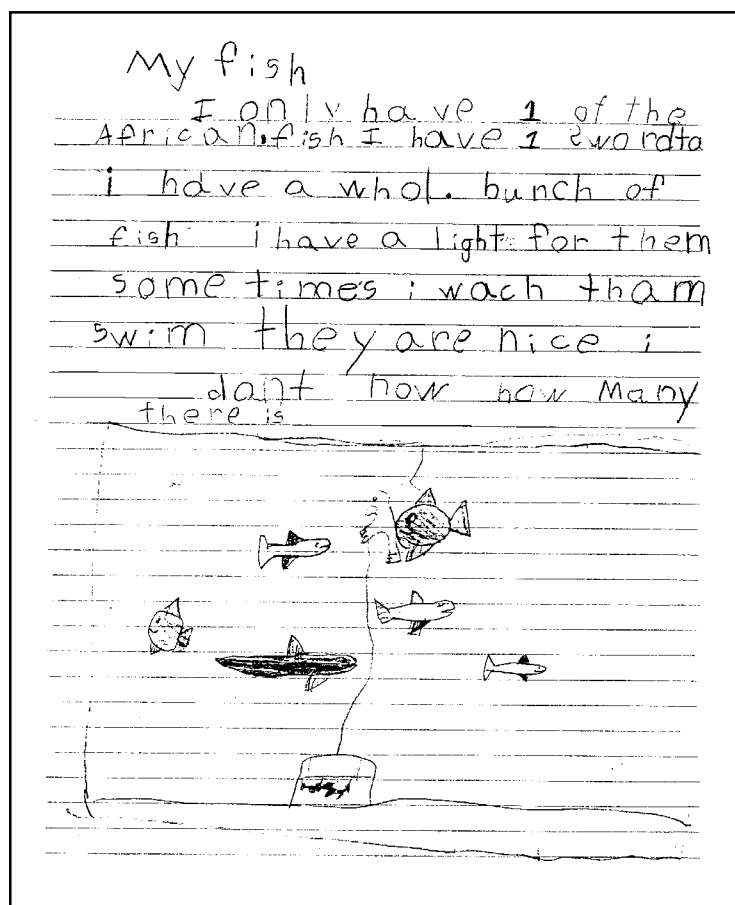 My fish
I only have 1 of the
African.fish I have 1 swordta
i have a whol. bunch of
fish i have a light for them
some times i wach tham
swim they are nice i
dant now how Many
there is